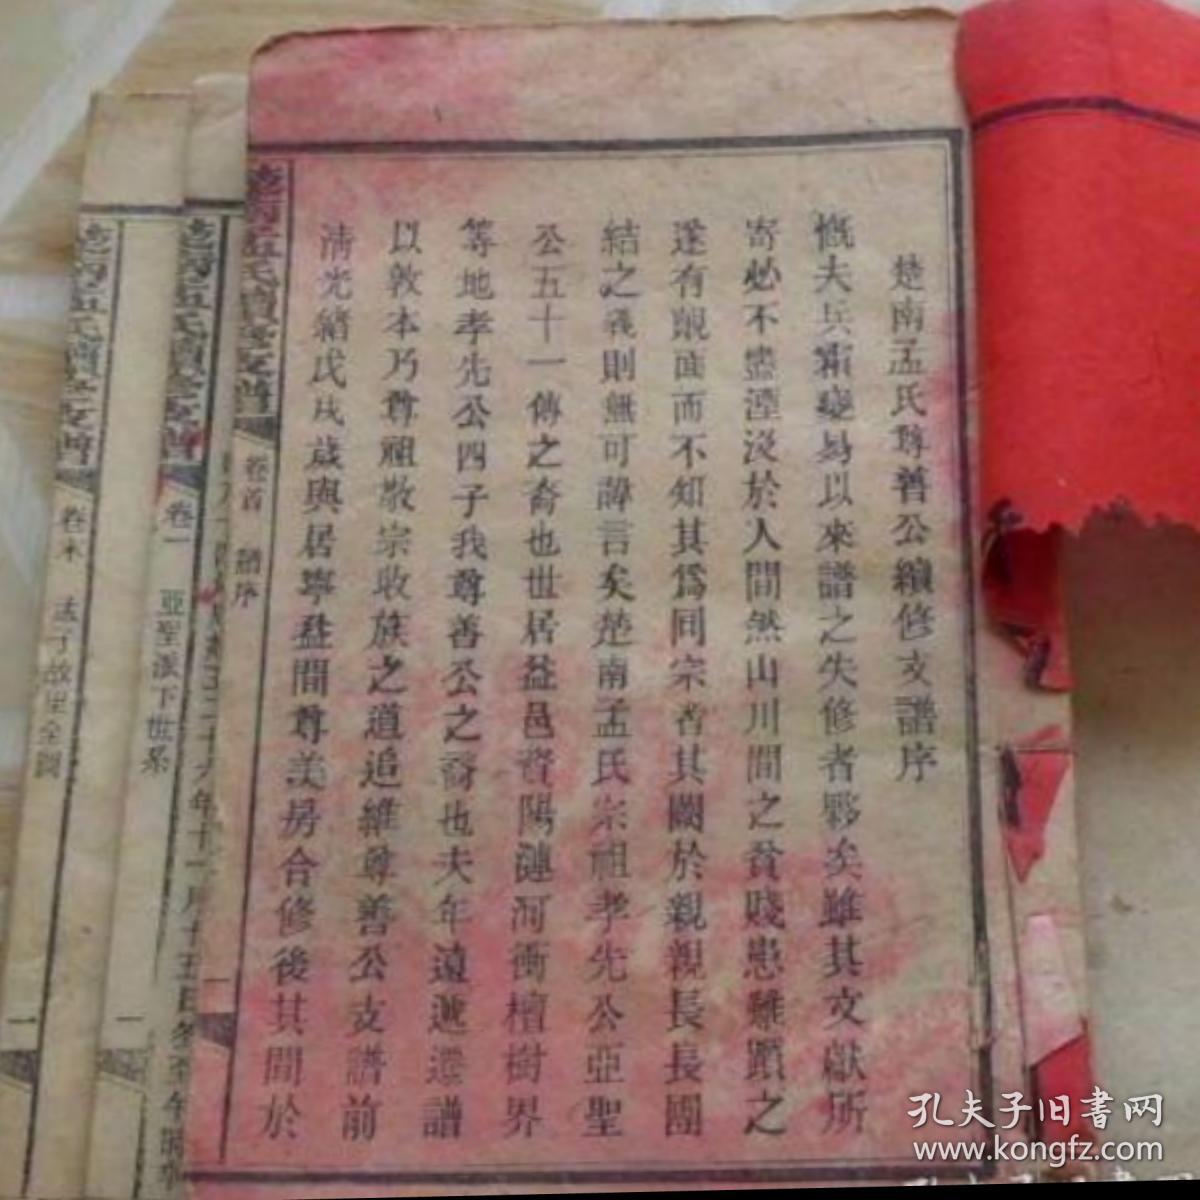 楚南孟氏尊善公續修支譜序
慨夫兵霜變易以來譜之失修者夥矣雖其文獻所
寄必不盡湮沒於人間然山川間之貧賤患難躓之
遂有覿面而不知其為同宗者其闕於親親長長團
結之義則無可諱言矣楚南孟氏宗祖孝先公亞聖
公五十一傳之裔也世居益邑資陽漣河衝檀樹界
等地孝先公四子我尊善公之裔也夫年遠遞湮譜
以敦本乃尊祖敬宗收族之道追維尊善公支譜前
清光緒戊戌歲與居寧益間尊美房合修後其間於
楚南孟氏續修支譜
卷首
譜序
一
楚南孟氏續修支譜
卷一
亞聖派下世系
一
楚南孟氏續修支譜
卷末
孟子故里全圖
一
孔夫子旧書网
www.kongfz.com